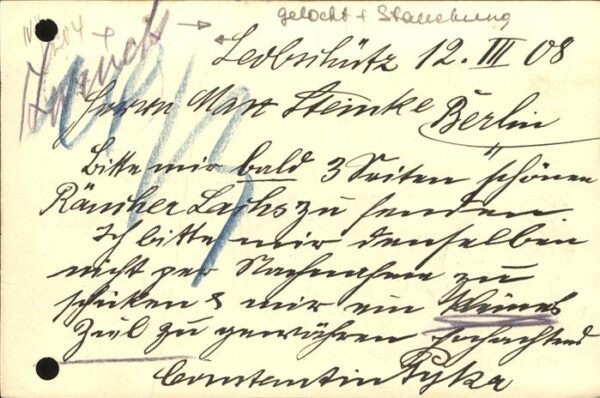 gelocht + Stauchung
Zurück
Leobschütz 12. III 08
Herrn Max Steincke Berlin
Bitte mir bald 3 Seiten schönen
Räucher Lachs zu senden.
Ich bitte mir denselben
nicht per Nachnahme zu
schicken & mir ein kleines
Ziel zu gewähren Hochachtend
Constantin Pyka